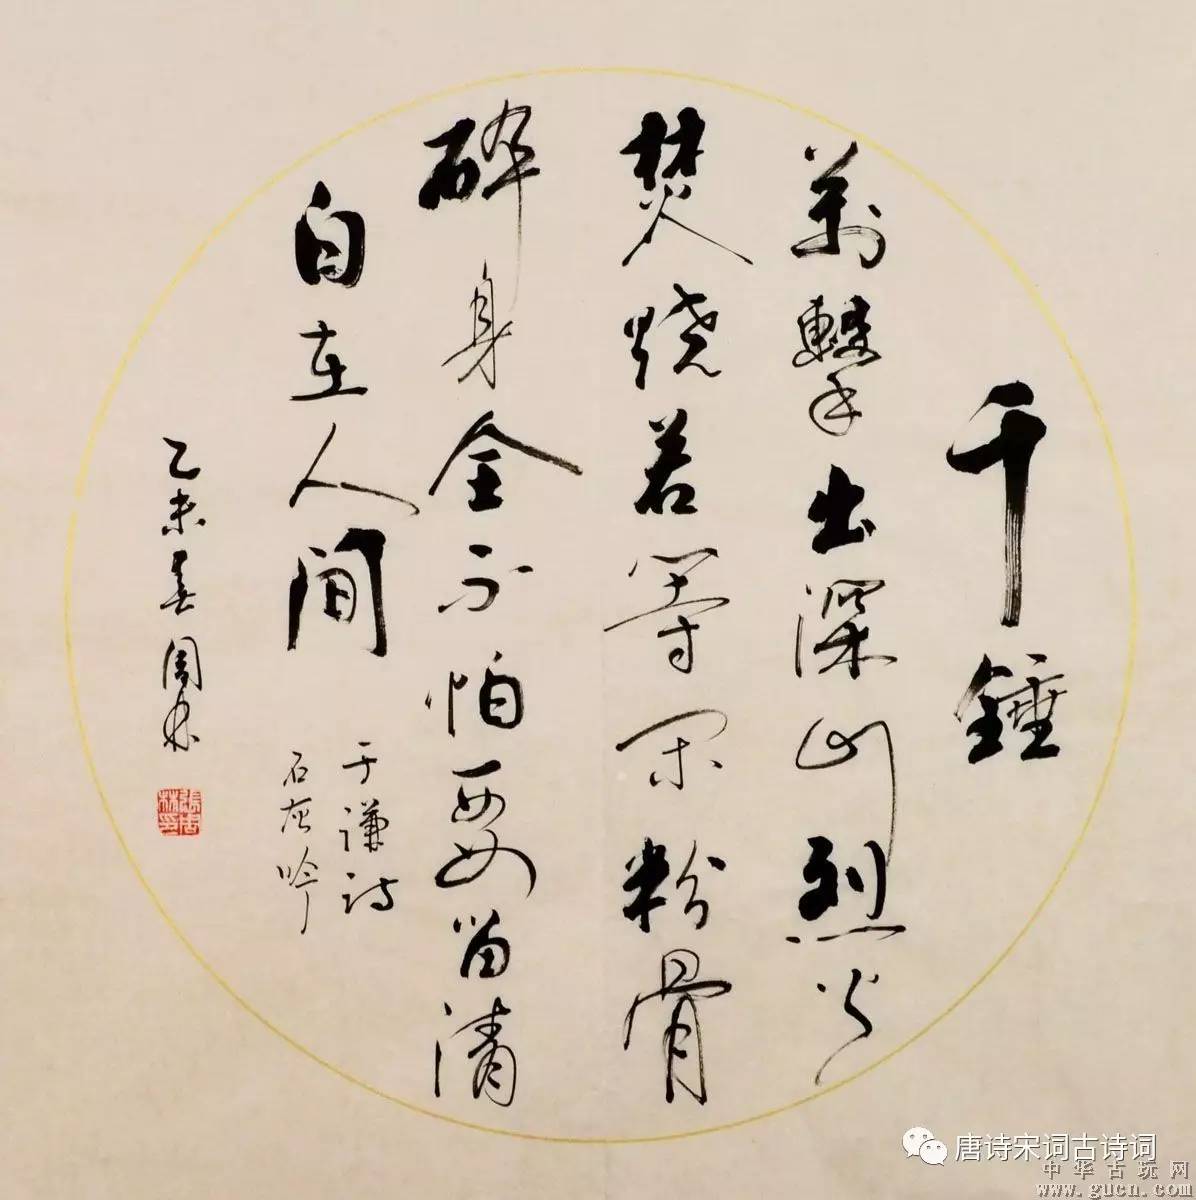 千錘
萬擊出深山烈火
焚燒若等閑粉骨
碎身全不怕要留清
白在人間
于謙詩
石灰吟
乙未春周林
張周林印
唐诗宋词古诗词
中华古玩网
www.gucn.com